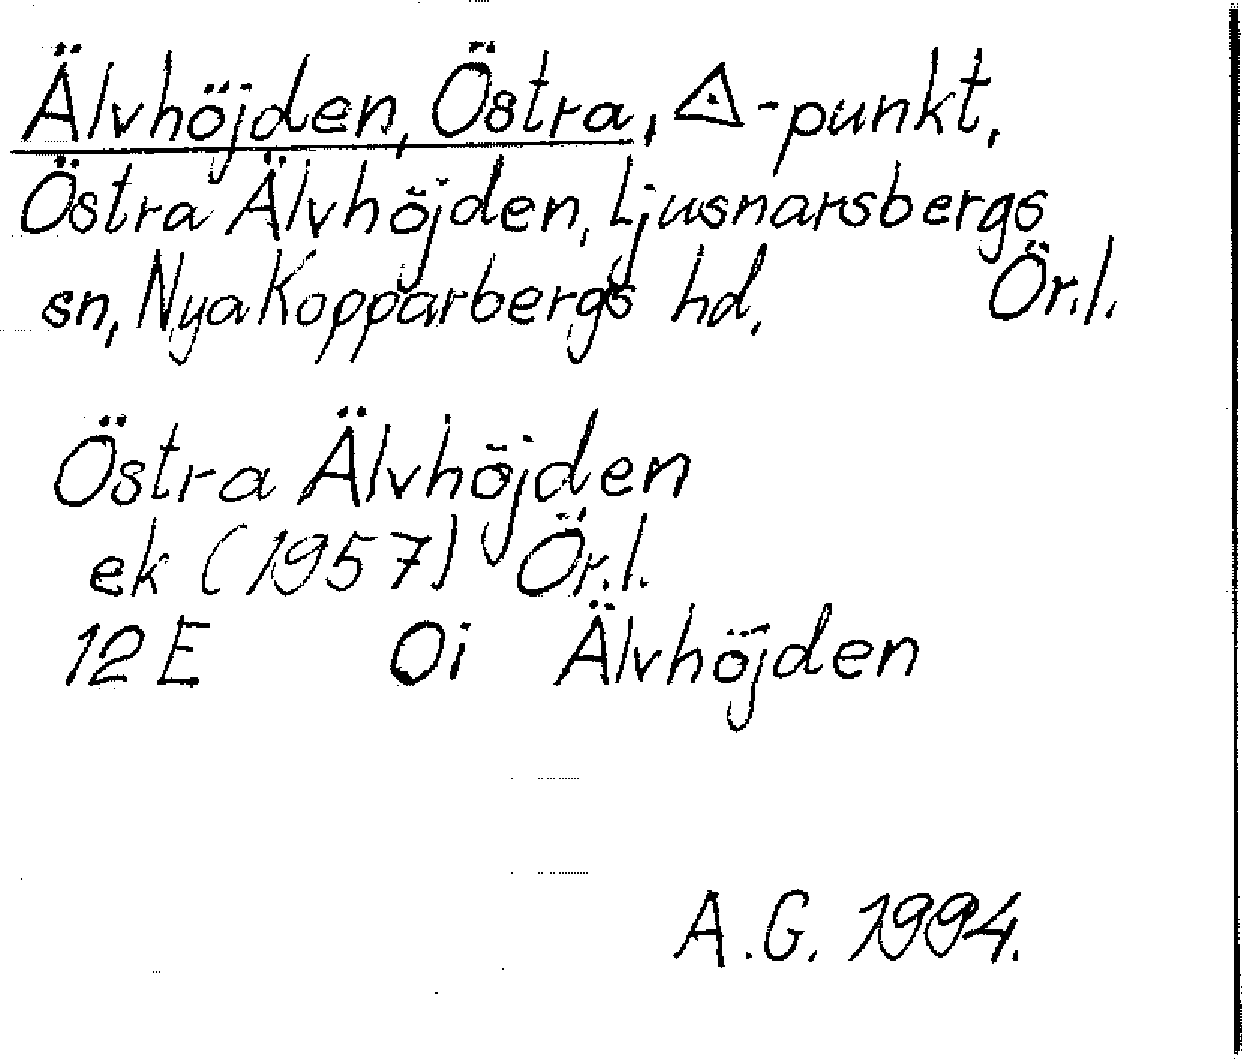 Älvhöjden, Östra, ◬-punkt,
Östra Älvhöjden, Ljusnarsbergs
sn, Nya Kopparbergs hd. Ör.l.
Östra Älvhöjden
ek (1957) Ör.l.
12E 0i Älvhöjden
A.G. 1994.